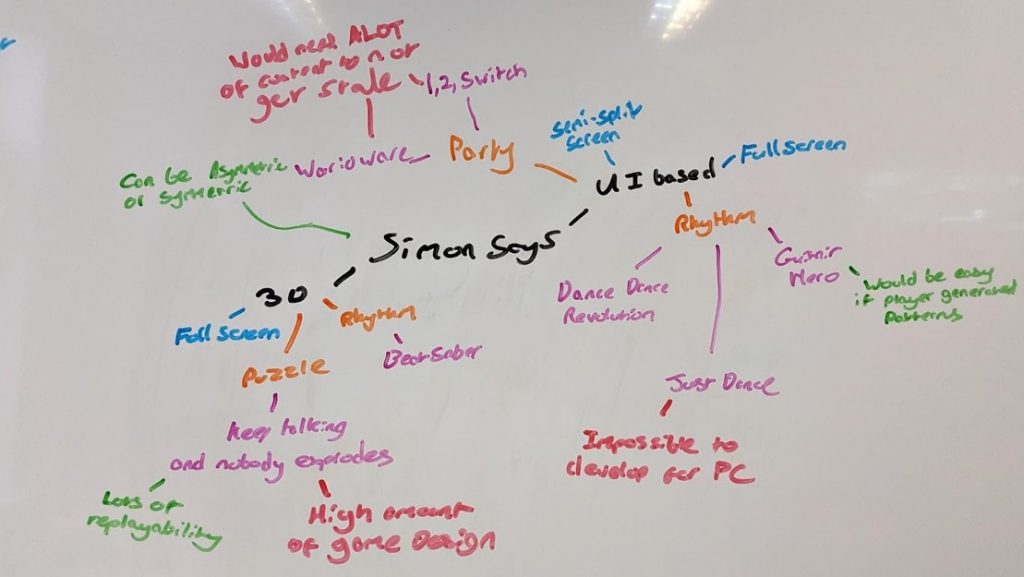 Would need ALOT
of content to not
get stale
1,2, Switch
Semi-split
Screen
Full Screen
Can be Asymetric
or Symetric
Warioware
Party
UI based
Rhythm
Simon Says
Guitair
Hero
Would be easy
if player generated
Patterns
Dance Dance
Revolution
3D
Full Screen
Rhythm
Beat Saber
Puzzle
Just Dance
Keep talking
and nobody explodes
Impossible to
develop for PC
Lots of
replayability
High amount
of game Design